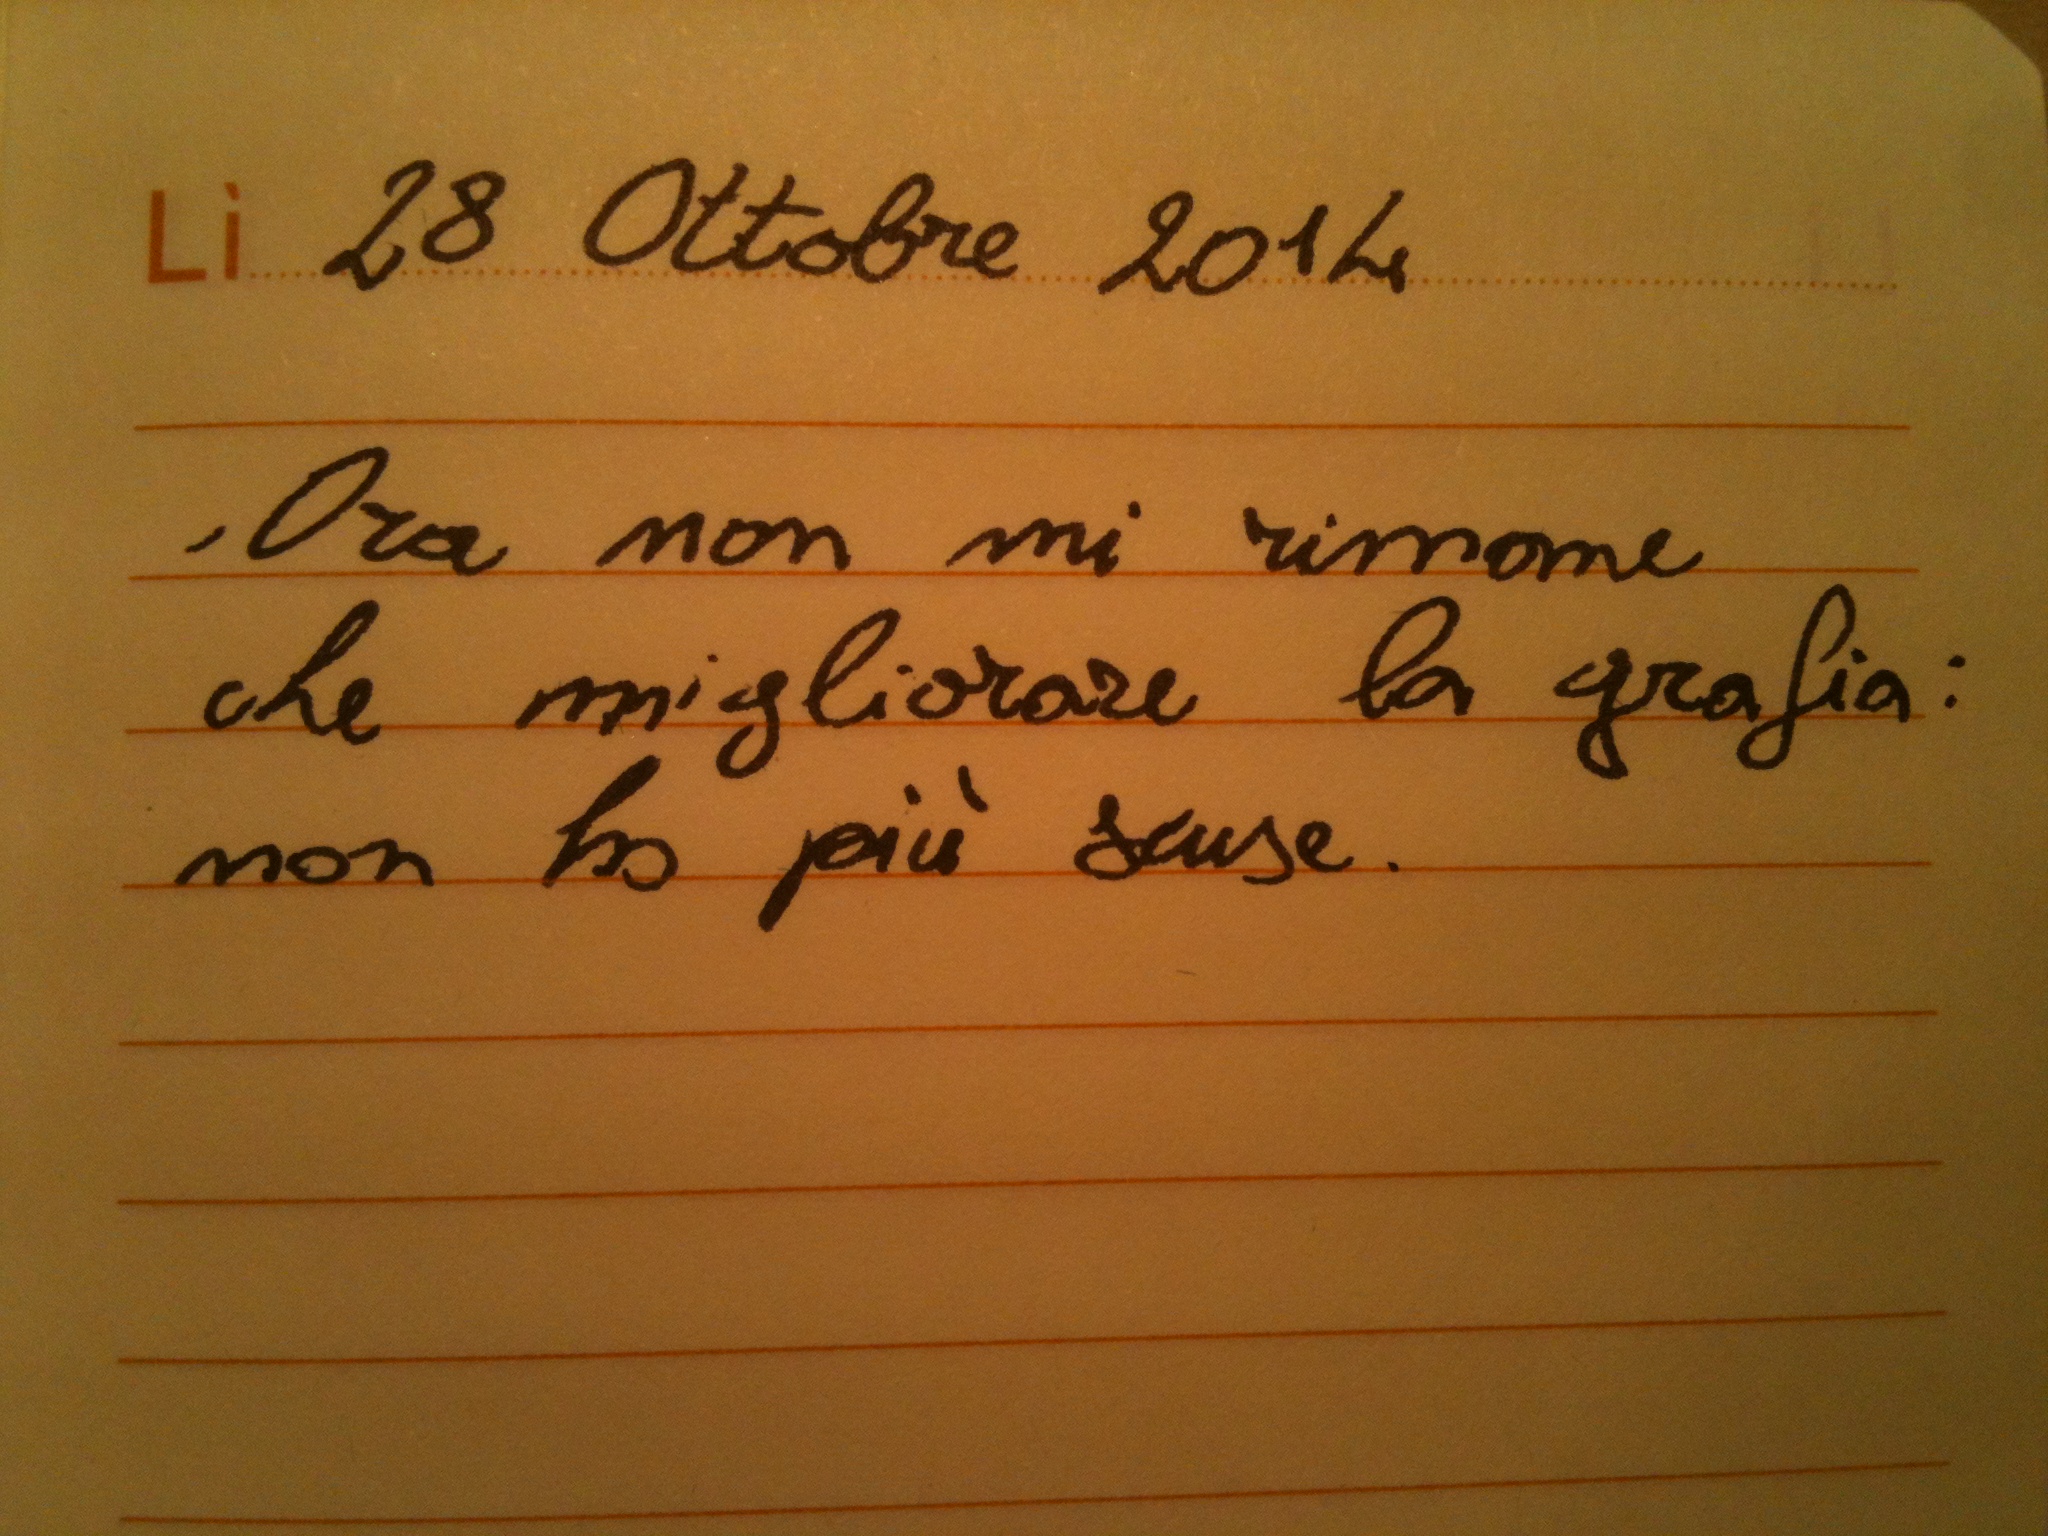 Lì 28 Ottobre 2014
Ora non mi rimane
che migliorare la grafia:
non ho più scuse.